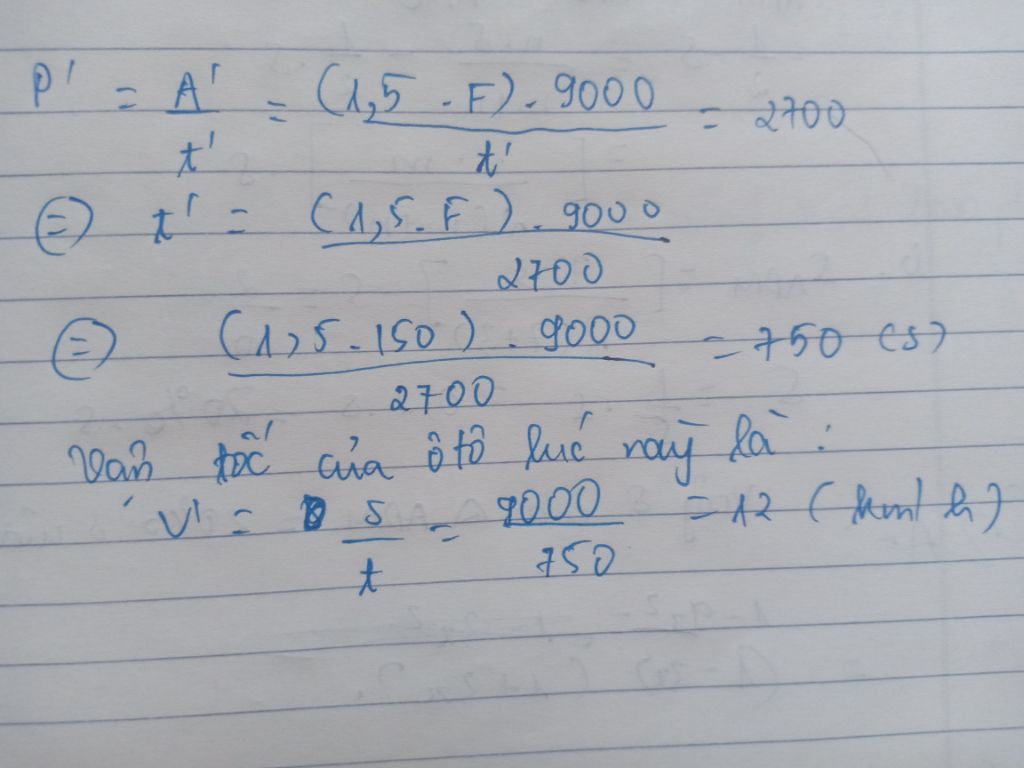 P' = A'/t' = (1,5 . F) . 9000 / t' = 2700
(=) t' = (1,5 . F) . 9000 / 2700
(=) (1,5 . 150) . 9000 / 2700 = 750 (s)
Vận tốc của ô tô lúc này là :
V' = s/t = 9000/750 = 12 (km/h)